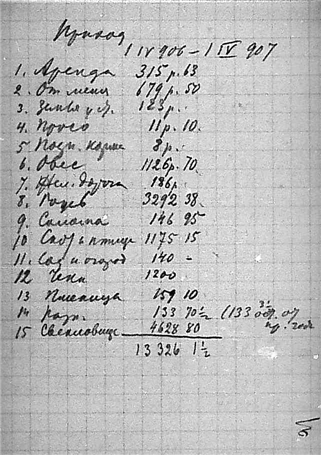 Приход
1 IV 906 – 1 IV 907
1. Аренда 315 р. 63
2. От меня 679 р. 50
3. Земья у Я. 123 р.
4. Просо 11 р. 10.
5 Подн. корма 8 р.
6. Овес 1126 р. 70
7. Жел. дорога 186 р.
8. Рожь 3292 38.
9. Солома 146 95
10 Скот и птице 1175 15
11. Сад и огород 140 –
12 Чеки 1200
13 Пшеница 159 10
14 Разн. 133 70½ (133
15 Свекловице 4628 80
13 326 1½